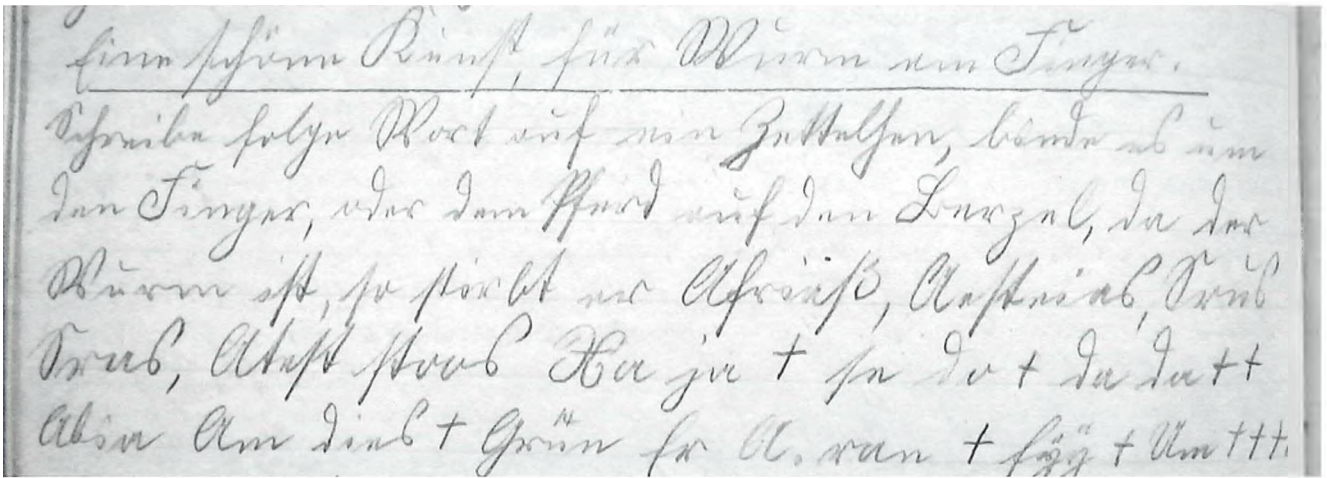 Eine schöne Kunst, für Wurm am Finger.
Schreibe folge Wort auf ein Zettelchen, binde es um
den Finger, oder dem Pferd auf den Berzel, da der
Wurm ist, so stirbt er Afriaß, Aesteias, Srus
Sras, Atest stoos Xa ja † se do † da da ††
Abia Am dies † Grün Er A. ran † fÿÿ † Um †††.